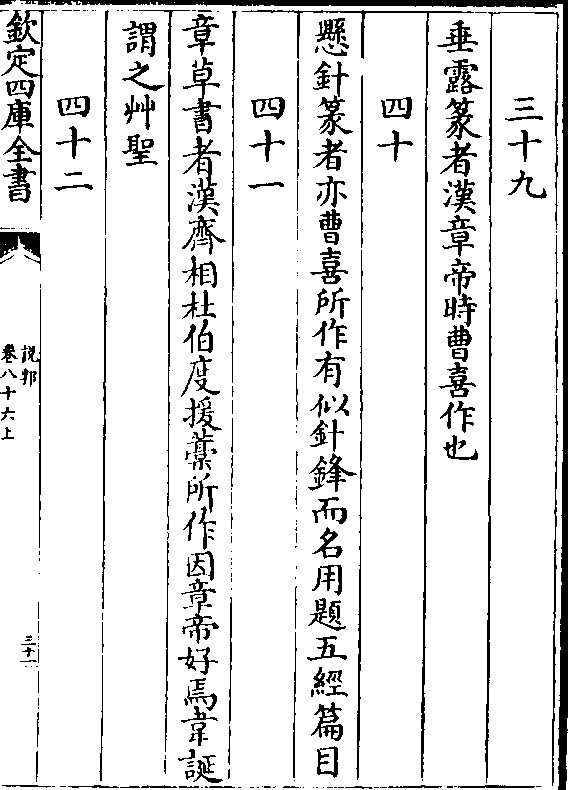 三十九
垂露篆者漢章帝時曹喜作也
四十
懸針篆者亦曹喜所作有似針鋒而名用題五經篇目
四十一
章草書者漢齊相杜伯度援藁所作因章帝好焉韋誕
謂之艸聖
四十二
欽定四庫全書
說郛
卷八十六上
三十一